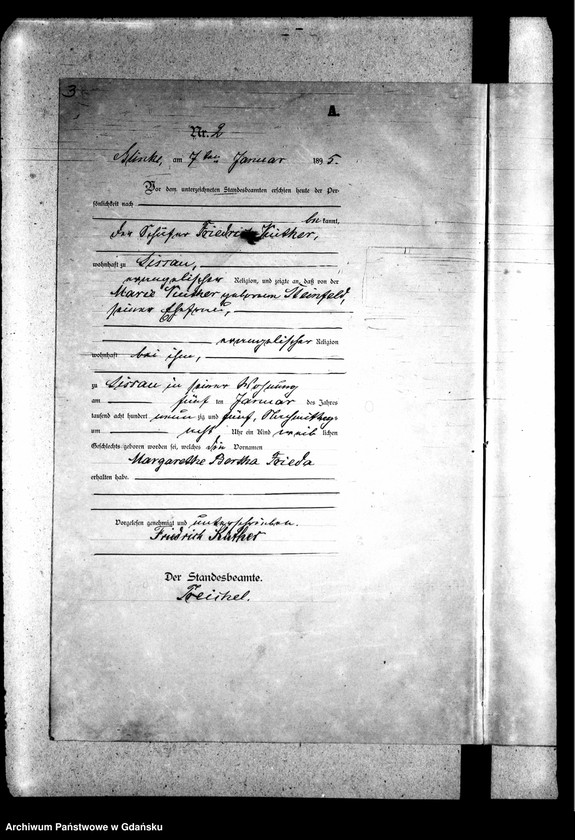 3
A.
Nr. 2
am 7 ten Januar 1895.
Vor dem unterzeichneten Standesbeamten erschien heute der Per-
sönlichkeit nach
be kannt,
der Schäfer Friedrich
wohnhaft zu Lissau,
evangelischer Religion, und zeigte an, daß von der
Marie geborenen Steinfeld,
seiner Ehefrau,
evangelischer Religion
wohnhaft bei ihm,
zu Lissau in seiner Wohnung
am fünf ten Januar des Jahres
tausend acht hundert neun zig und fünf, Nachmittags
um acht Uhr ein Kind weib lichen
Geschlechts geboren worden sei, welches die Vornamen
Margarethe Bertha Frieda
erhalten habe.
Vorgelesen, genehmigt und unterschrieben.
Friedrich
Der Standesbeamte.
Archiwum Państwowe w Gdańsku